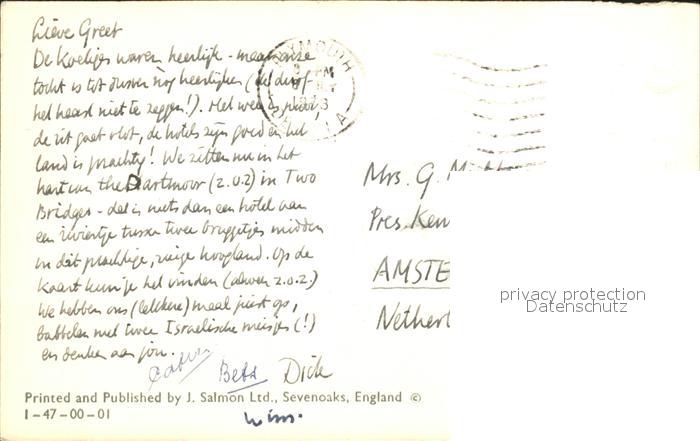 Lieve Greet
De Koekjes waren heerlijk - maar onze
tocht is tot dusver nog heerlijker (dat durf
het haast niet te zeggen!). Het weer is prachtig
de rit gaat vlot, de hotels zijn goed en het
land is prachtig! We zitten nu in het
hart van the Dartmoor (z.o.z) in Two
Bridges - dat is niets dan een hotel aan
een riviertje tussen twee bruggetjes midden
in dit prachtige, ruige hoogland. Op de
kaart kun je het vinden (alweer z.o.z.)
We hebben ons (lekkere) maal juist op,
babbelen met twee Israelische meisjes (!)
en denken aan jou.
Bets Dick
Wim.
PLYMOUTH
PM
Mrs. G. M
Pres. Ken
AMSTE
Nether
privacy protection
Datenschutz
Printed and Published by J. Salmon Ltd., Sevenoaks, England ©
1-47-00-01